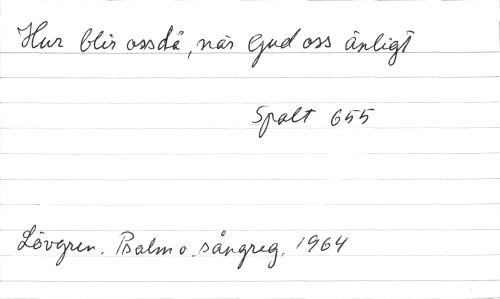 Hur blir oss då, när Gud oss änligt
Spalt 655
Lövgren. Psalm o. sångreg. 1964